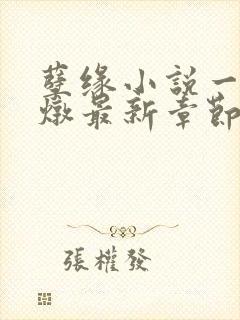 孽缘小説一
燉最新章節
張權發